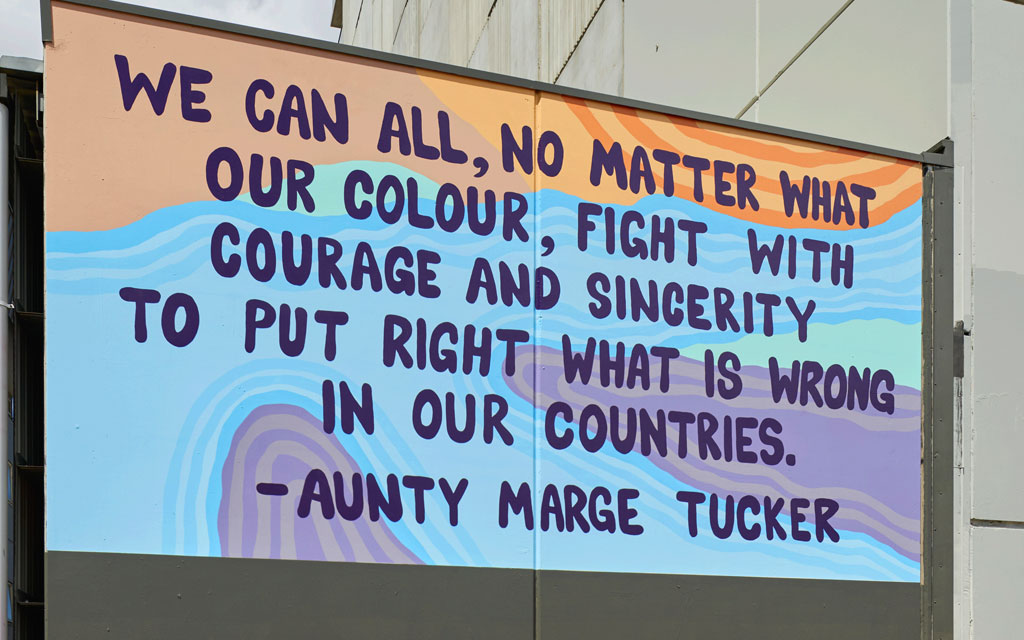 WE CAN ALL, NO MATTER WHAT
OUR COLOUR, FIGHT WITH
COURAGE AND SINCERITY
TO PUT RIGHT WHAT IS WRONG
IN OUR COUNTRIES.
-AUNTY MARGE TUCKER